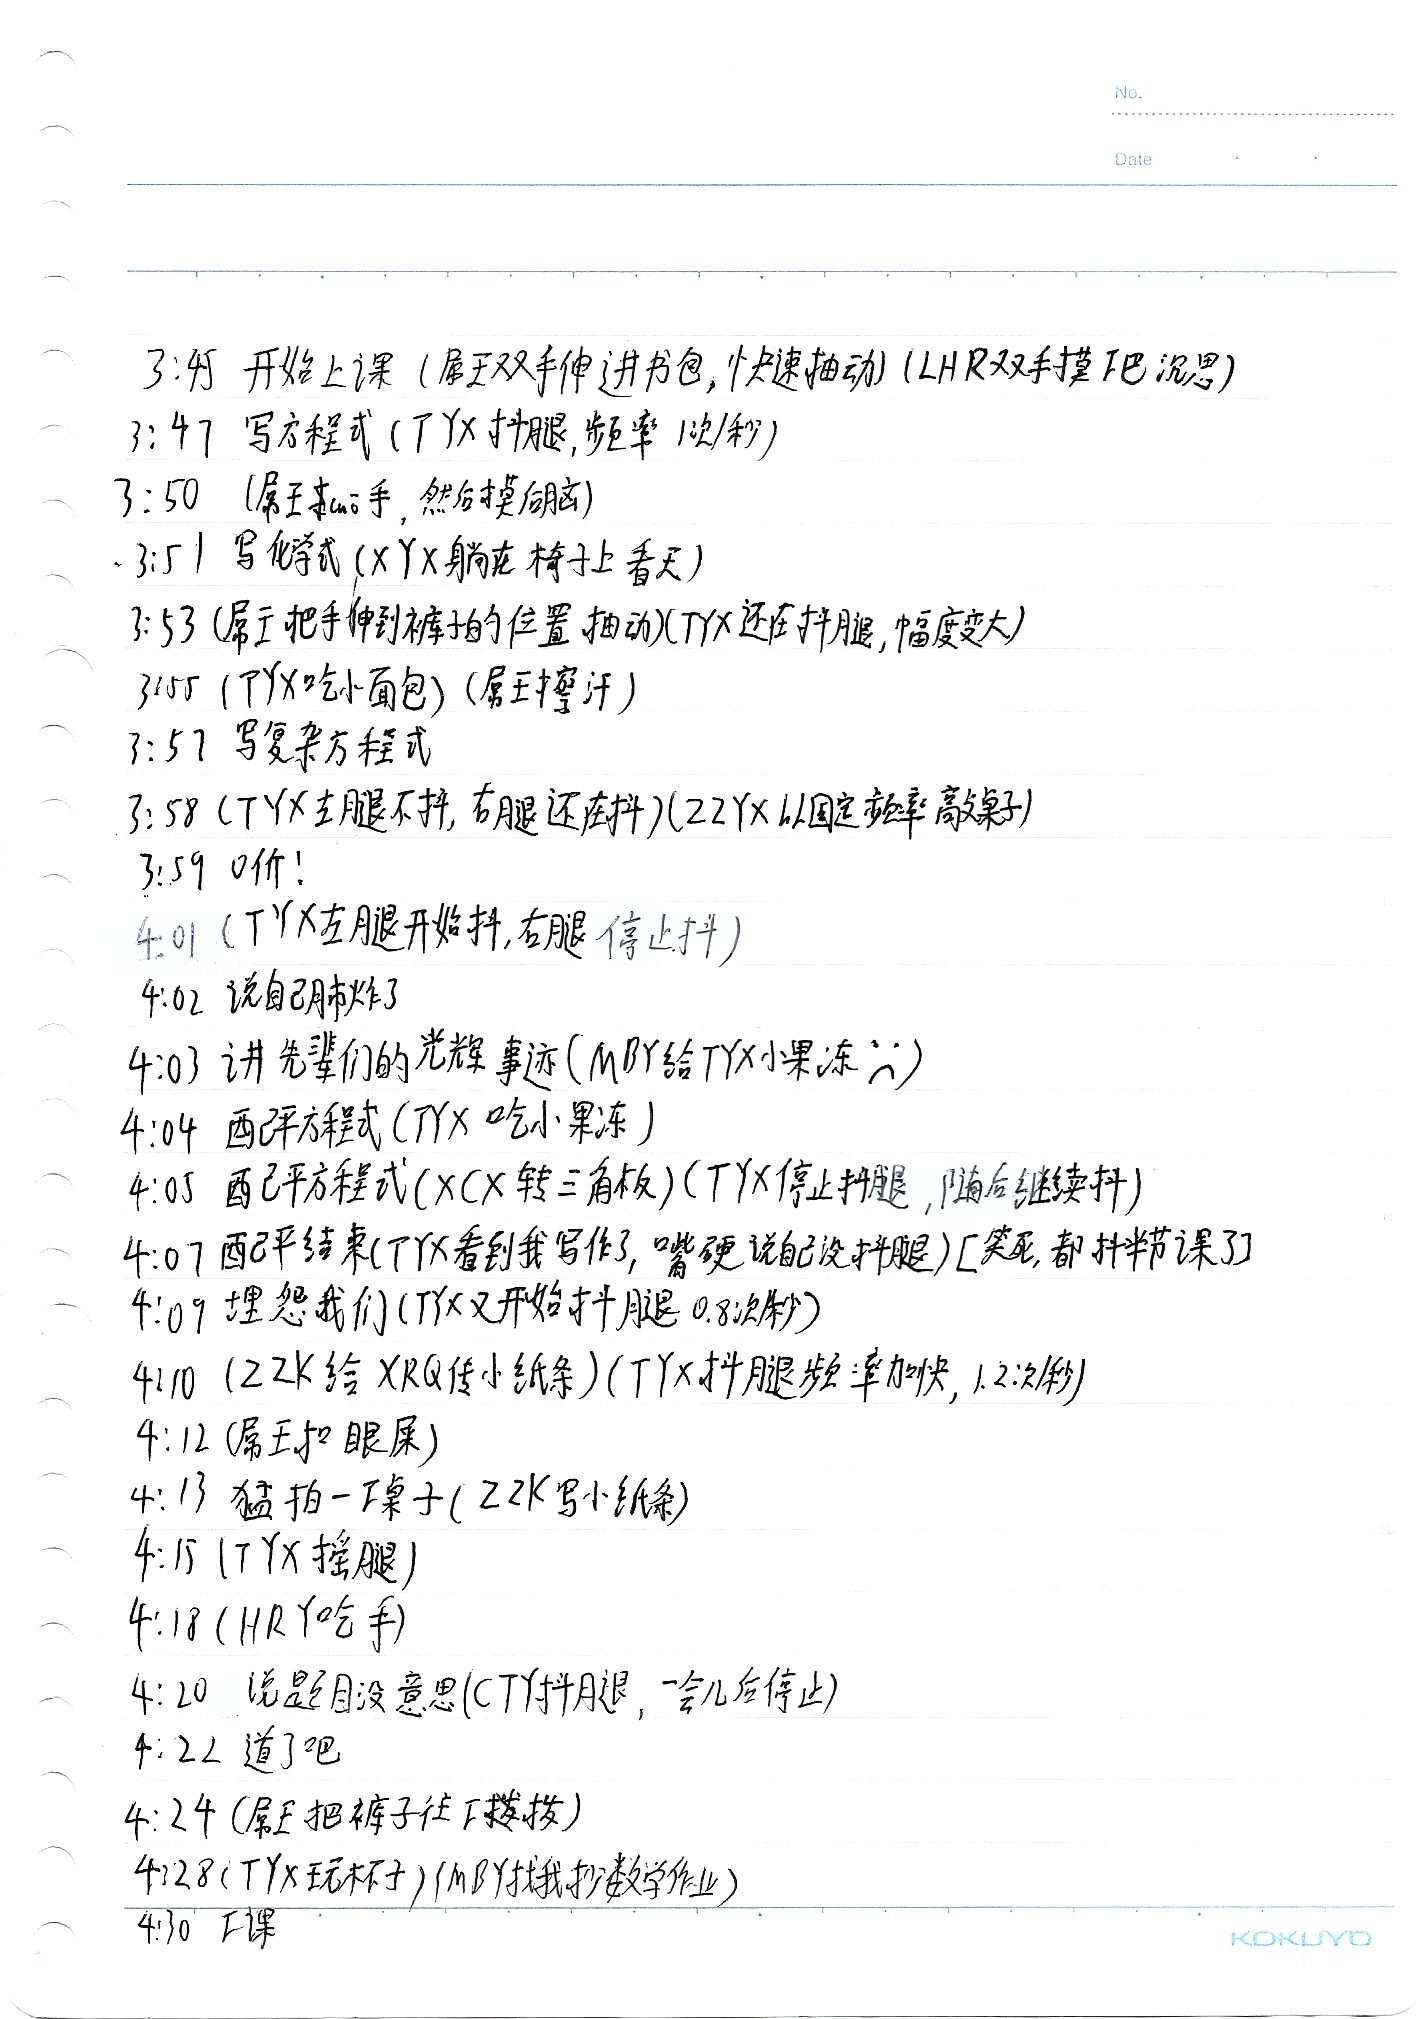 No.
Date
3:45 开始上课（屌王双手伸进书包，快速抽动）（LHR双手摸下巴沉思）
3:47 写方程式（TYX抖腿，频率1次/秒）
3:50 （屌王 手，然后摸后脑）
3:51 写化学式（XYX躺在椅子上看天）
3:53（屌王把手伸到裤子的位置抽动）（TYX还在抖腿，幅度变大）
3:55（TYX吃小面包）（屌王擦汗）
3:57 写复杂方程式
3:58（TYX左腿不抖，右腿还在抖）（ZZYX以固定频率敲桌子）
3:59 0价！
4:01（TYX左腿开始抖，右腿停止抖）
4:02 说自己肺炸了
4:03 讲先辈们的光辉事迹（MBY给TYX小果冻）
4:04 配平方程式（TYX吃小果冻）
4:05 配平方程式（XCX转三角板）（TYX停止抖腿，随后继续抖）
4:07 配平结束（TYX看到我写作了，嘴硬说自己没抖腿）[笑死，都抖半节课了]
4:09 埋怨我们（TYX又开始抖腿0.8次/秒）
4:10（ZZK给XRQ传小纸条）（TYX抖腿频率加快，1.2次/秒）
4:12（屌王扣眼屎）
4:13 猛拍一下桌子（ZZK写小纸条）
4:15（TYX摇腿）
4:18（HRY吃手）
4:20 说题目没意思（CTY抖腿，一会儿后停止）
4:22 道了吧
4:24（屌王把裤子往下拨拨）
4:28（TYX玩杯子）（MBY找我抄数学作业）
4:30 下课
KOKUYO